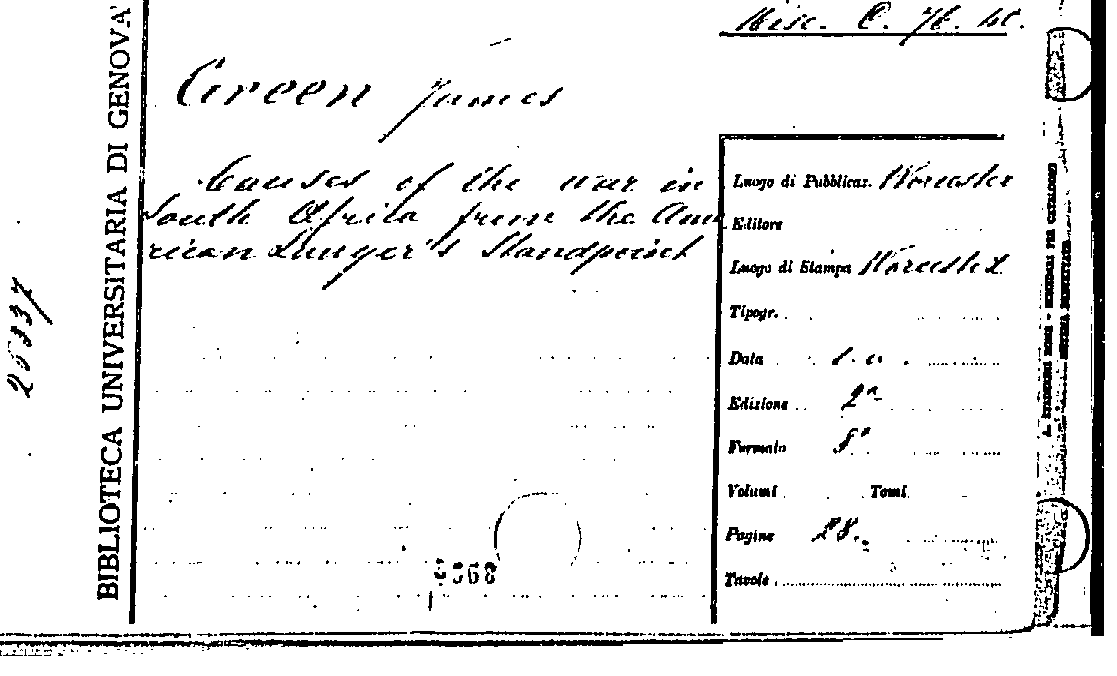 Misc. C. 76. 42.
Green James
Causes of the war in
South Africa from the Ame
rican Lawyer's Standpoint
Luogo di Pubblicaz. Worcester
Editore
Luogo di Stampa Worcester
Tipogr.
Data s. a.
Edizione 2ª
Formato 8°
Volumi Tomi
Pagine 28.
Tavole
BIBLIOTECA UNIVERSITARIA DI GENOVA